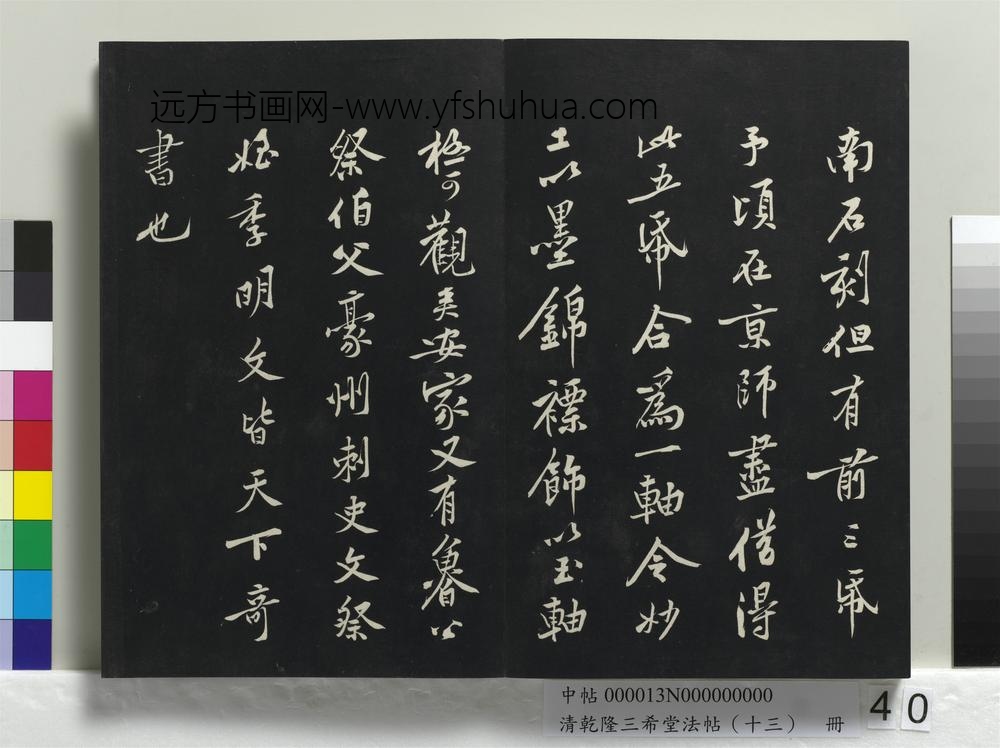 远方书画网-www.yfshuhua.com
南石刻但有前三帋
予頃在京師盡借得
此五帋合爲一軸令妙
工以墨錦褾飾以玉軸
極可觀長安家又有魯公
祭伯父豪州刺史文祭
姪季明文皆天下奇
書也
中帖 000013N000000000
清乾隆三希堂法帖（十三） 冊
40